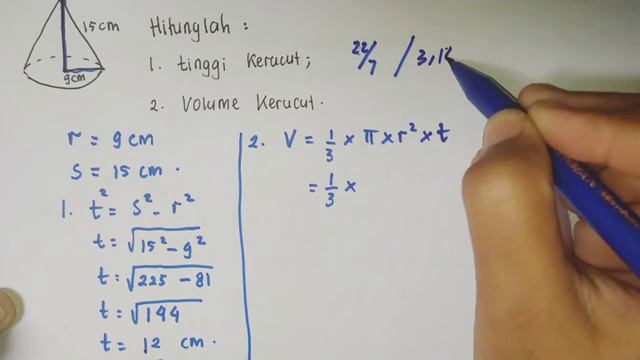 15cm
9cm
Hitunglah :
1. tinggi kerucut;
2. Volume Kerucut.
22/7 / 3,1
r = 9 cm
s = 15 cm .
1. t² = s² - r²
t = √15² - 9²
t = √225 - 81
t = √144
t = 12 cm .
2. V = 1/3 x π x r² x t
= 1/3 x